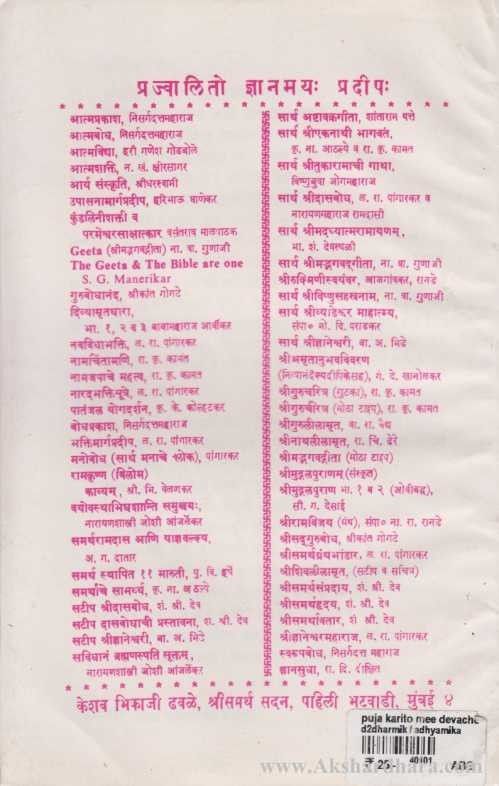 प्रज्वालितो ज्ञानमयः प्रदीपः
आत्मप्रकाश, निसर्गदत्तमहाराज
आत्मबोध, निसर्गदत्तमहाराज
आत्मविद्या, हरी गणेश गोडबोले
आत्मशक्ति, न. खं. क्षीरसागर
आर्य संस्कृति, श्रीधरस्वामी
उपासनामार्गप्रदीप, हरिभाऊ घाणेकर
कुंडलिनीशक्ती व
परमेश्वरसाक्षात्कार वसंतराव मालपाठक
Geeta (श्रीमद्भगवद्गीता) ना. वा. गुणाजी
The Geeta & The Bible are one
S. G. Manerikar
गुरुबोधानंद, श्रीकांत गोगटे
दिव्यामृतधारा,
भा. १, २ व ३ बाबामहाराज आर्वीकर
नवविधाभक्ति, ल. रा. पांगारकर
नामचिंतामणि, रा. कृ. कामत
नामजपाचे महत्त्व, रा. कृ. कामत
नारदभक्तिसूत्रे, ल. रा. पांगारकर
पातंजल योगदर्शन, कृ. के. कोल्हटकर
बोधप्रकाश, निसर्गदत्तमहाराज
भक्तिमार्गप्रदीप, ल. रा. पांगारकर
मनोबोध (सार्थ मनाचे श्लोक), पांगारकर
रामकृष्ण (विलोम)
काव्यम्, श्री. भि. वेलणकर
वयोवस्थाभिधशान्ति समुच्चयः,
नारायणशास्त्री जोशी आंजर्लेकर
समर्थरामदास आणि याज्ञवल्क्य,
अ. ग. दातार
समर्थ स्थापित ११ मारुती, पु. वि. हर्षे
समर्थांचे सामर्थ्य, कृ. ना. आठल्ये
सटीप श्रीदासबोध, शं. श्री. देव
सटीप दासबोधाची प्रस्तावना, शं. श्री. देव
सटीप श्रीज्ञानेश्वरी, बा. अ. भिडे
सविधानं ब्रह्मणस्पति सूक्तम्,
नारायणशास्त्री जोशी आंजर्लेकर
सार्थ अष्टावक्रगीता, शांताराम पत्ते
सार्थ श्रीएकनाथी भागवत,
कृ. ना. आठल्ये व रा. कृ. कामत
सार्थ श्रीतुकारामाची गाथा,
विष्णुबुवा जोगमहाराज
सार्थ श्रीदासबोध, ल. रा. पांगारकर व
नारायणमहाराज रामदासी
सार्थ श्रीमदध्यात्मरामायणम्,
भा. शं. देवस्थळी
सार्थ श्रीमद्भगवद्गीता, ना. वा. गुणाजी
श्रीरुक्मिणीस्वयंवर, आजगांवकर, रानडे
सार्थ श्रीविष्णुसहस्रनाम, ना. वा. गुणाजी
सार्थ श्रीव्याडेश्वर माहात्म्य,
संपा० मो. दि. पराडकर
सार्थ श्रीज्ञानेश्वरी, बा. अ. भिडे
श्रीअमृतानुभवविवरण
(नित्यानंदैक्यदीपिकेसह), गं. दे. खानोलकर
श्रीगुरुचरित्र (गुटका), रा. कृ. कामत
श्रीगुरुचरित्र (मोठा टाइप), रा. कृ. कामत
श्रीगुरुलीलामृत, वा. रा. वैद्य
श्रीनाथलीलामृत, रा. चिं. ढेरे
श्रीमद्भगवद्गीता (मोठा टाइप)
श्रीमुद्गलपुराणम् (संस्कृत)
श्रीमुद्गलपुराण भा. १ व २ (ओवीबद्ध),
सी. ग. देसाई
श्रीरामविजय (ग्रंथ), संपा० ना. रा. रानडे
श्रीसद्गुरुबोध, श्रीकांत गोगटे
श्रीसमर्थग्रंथभांडार, ल. रा. पांगारकर
श्रीशिवलीलामृत, (सटीप व सचित्र)
श्रीसमर्थसंप्रदाय, शं. श्री. देव
श्रीसमर्थहृदय, शं. श्री. देव
श्रीसमर्थावतार, शं. श्री. देव
श्रीज्ञानेश्वरमहाराज, ल. रा. पांगारकर
स्वरूपबोध, निसर्गदत्त महाराज
ज्ञानसुधा, रा. दि. दीक्षित
केशव भिकाजी ढवळे, श्रीसमर्थ सदन, पहिली भटवाडी, मुंबई ४
puja karito mee devache
d2dharmik / adhyamika
₹ 25.- 40101 ABC
www.Akshardhara.com